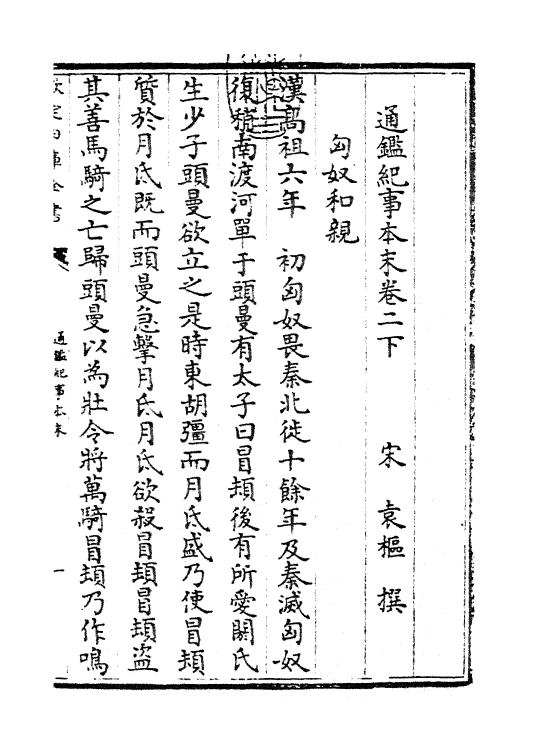 通鑑紀事本末卷二下
宋 袁樞 撰
匈奴和親
漢高祖六年 初匈奴畏秦北徙十餘年及秦滅匈奴
復稍南渡河單于頭曼有太子曰冒頓後有所愛閼氏
生少子頭曼欲立之是時東胡彊而月氐盛乃使冒頓
質於月氐既而頭曼急擊月氐月氐欲殺冒頓冒頓盜
其善馬騎之亡歸頭曼以為壯令將萬騎冒頓乃作鳴
欽定四庫全書
通鑑紀事本末
一